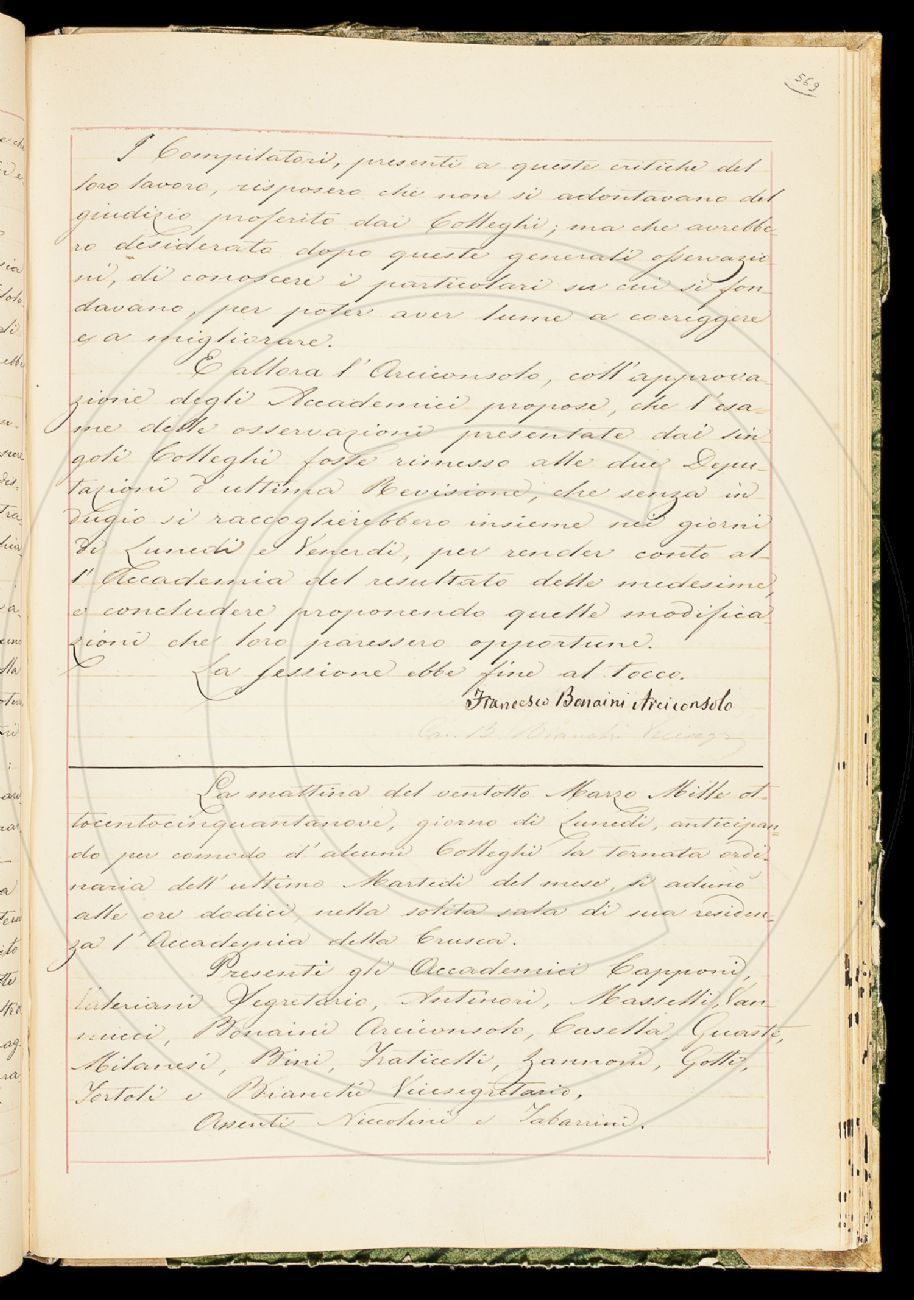 569
I Compilatori, presenti a queste critiche del
loro lavoro, risposero che non si adontavano del
giudizio proferito dai Colleghi; ma che avrebbe-
ro desiderato dopo queste generali osservazio
ni, di conoscere i particolari su cui si fon-
davano, per poter aver lume a correggere
e a migliorare.
E allora l'Arciconsolo, coll'approva-
zione degli Accademici propose, che l'esa-
me delle osservazioni presentate dai sin
goli Colleghi fosse rimesso alle due Depu-
tazioni d'ultima Revisione, che senza in-
dugio si raccoglierebbero insieme nei giorni
di Lunedì e Venerdì, per render conto al-
l'Accademia del resultato delle medesime,
e concludere proponendo quelle modifica
zioni che loro paressero opportune.
La sessione ebbe fine al tocco.
Francesco Bonaini Arciconsolo
Can. B. Bianchi Vicesegr.
La mattina del ventotto Marzo Mille ot-
tocentocinquantanove, giorno di Lunedì, anticipan-
do per comodo d'alcuni Colleghi la tornata ordi-
naria dell'ultimo Martedì del mese, si adunò
alle ore dodici nella solita sala di sua residen-
za l'Accademia della Crusca.
Presenti gli Accademici Capponi,
Valeriani Segretario, Antinori, Masselli, Van-
nucci, Bonaini Arciconsolo, Casella, Guasti,
Milanesi, Bini, Fraticelli, Zannoni, Gotti,
Tortoli e Bianchi Vicesegretario.
Assenti Niccolini e Tabarrini.